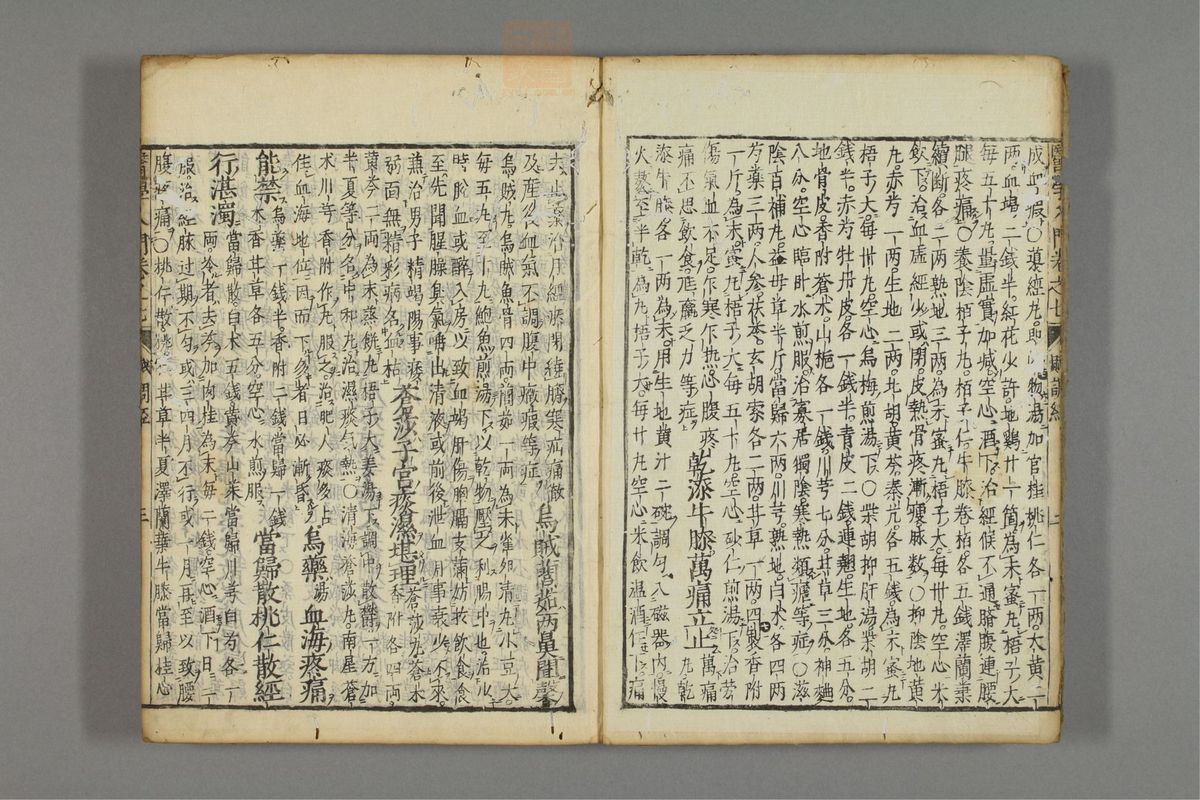 成血瘕○導經丸即四物湯加官桂桃仁各一兩大黃二
兩血竭二錢半紅花少許地雞廿一箇為末蜜丸梧子大
每五十丸量虛實加減空心酒下治經候不通臍腹連腰
腿疼痛○養陰栢子丸栢子仁牛膝卷栢各五錢澤蘭葉
續斷各二兩熟地三兩為末蜜丸梧子大每卅丸空心米
飲下治血虛經少或閉皮熱骨疼漸瘦脉数○抑陰地黃
丸赤芍一兩生地二兩北胡黃芩秦艽各五錢為末蜜丸
梧子大每卅丸空心烏梅煎湯下○柴胡抑肝湯柴胡二
錢半赤芍牡丹皮各一錢半青皮二錢連翹生地各五分
地骨皮香附蒼朮山梔各一錢川芎七分甘草三分神麯
八分空心臨卧水煎服治寡居獨陰寒熱類瘧等症○滋
陰百補丸益母草半斤當歸六兩川芎熟地白朮各四兩
芍藥三兩人參茯苓玄胡索各二兩甘草一兩四製香附
一斤為末蜜丸梧子大每五十丸空心砂仁煎湯下治勞
傷氣血不足乍寒乍热心腹疼
乾漆牛膝萬痛立止
萬痛丸乾
痛不思飲食尫羸乏力等症
漆牛膝各一兩為末用生地黃汁二碗調匀入磁器内慢
火熬至半乾為丸梧子大每廿丸空心米飲温酒任下痛
及産后血氣不調腹中癥瘕等症
烏賊䕡茹两鼻聞馨
烏賊丸烏賊魚骨四兩䕡茹一兩為末雀卵清丸小豆大
每五丸至十丸鮑魚煎湯下以乾物壓之利腸中也治少
時脫血或醉入房以致血竭肝傷胸膈支滿妨於飲食食
至先聞腥臊臭氣唾出清液或前後泄血月事衰少不來
兼治男子精竭陽事痿
弱面無精彩病名血枯
蒼莎子宮痰濕堪理
蒼莎丸蒼朮
香附各四兩
黃芩一兩為末蒸餅丸梧子大姜湯下調中散鬱一方加
半夏等分名中和丸治濕痰气熱○清海蒼莎丸南星蒼
朮川芎香附作丸服治肥人痰多占
住血海地位而下多者日必漸昏
烏藥湯血海疼痛
能禁
烏藥一錢半香附二錢當歸一錢
木香甘草各五分空心水煎服
當歸散桃仁散經
行湛濁
當歸散白朮五錢黃芩山茱當歸川芎白芍各一
兩冷者去芩加肉桂為末每二錢空心酒下日二
服治經脉过期不匀或三四月不行或一月再至以致腰
腹疼痛○桃仁散桃仁甘草半夏澤蘭葉牛膝當歸桂心